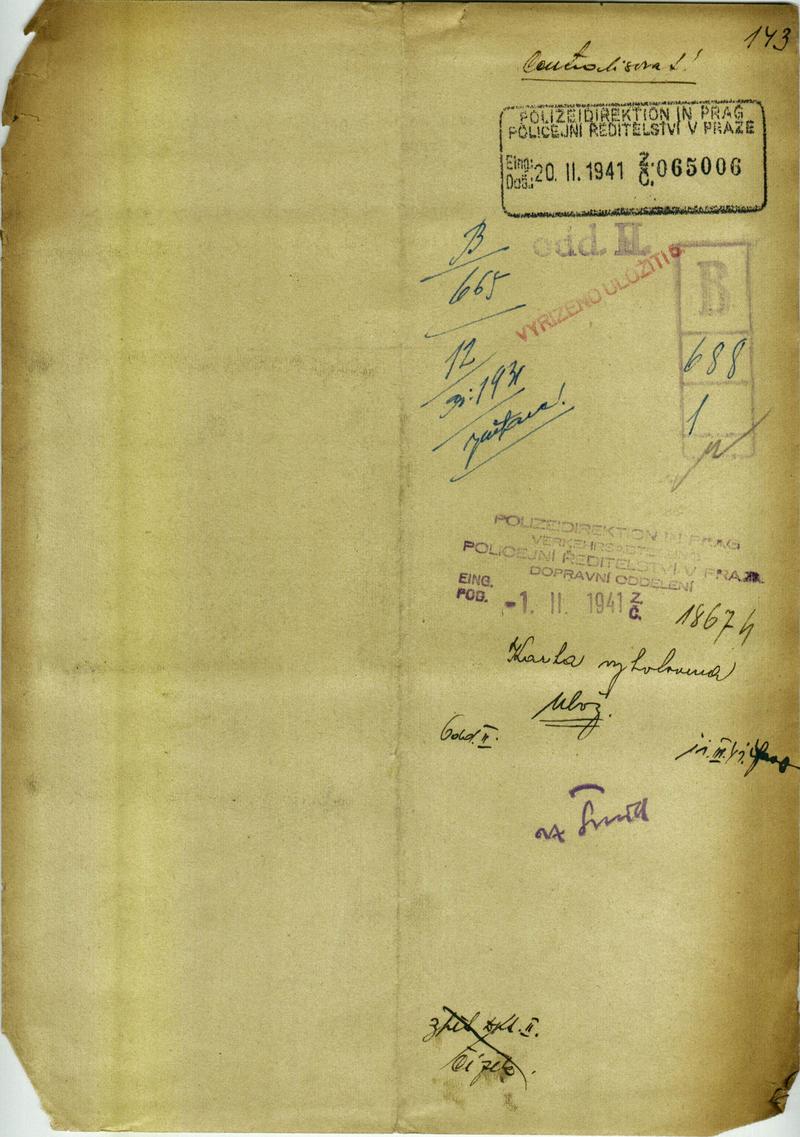 143
Centralisovat!
POLIZEIDIREKTION IN PRAG
POLICEJNÍ ŘEDITELSTVÍ V PRAZE
Eing:
Doš.: 20. II. 1941 Z. Č. 065006
odd. II.
B
665
12
1931
VYŘÍZENO ULOŽITI
B
688
1
POLIZEIDIREKTION IN PRAG
VERKEHRSABTEILUNG
POLICEJNÍ ŘEDITELSTVÍ V PRAZE
DOPRAVNÍ ODDĚLENÍ
EING.
POD. -1. II. 1941 Z. Č. 1867
Karta vyhotovena
Ulož.
Odd. II.
zpět odd. II.